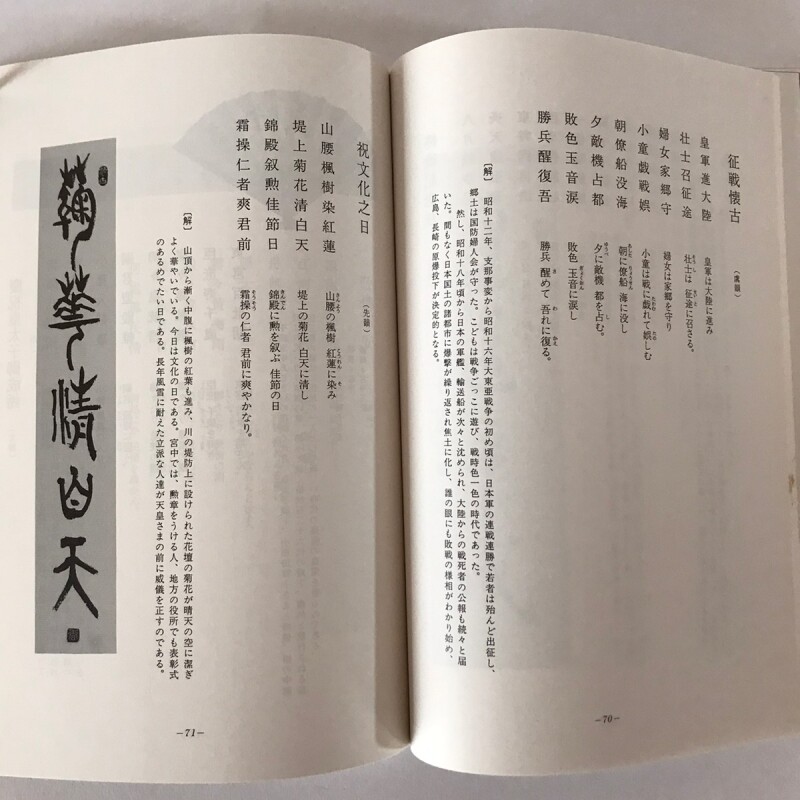 征戦懐古
（虞韻）
皇軍進大陸
皇軍は大陸に進み
壮士召征途
壮士は 征途に召さる。
婦女家郷守
婦女は家郷を守り
小童戯戦娯
小童は戦に戯れて娯しむ
朝僚船没海
朝に僚船 海に没し
夕敵機占都
夕に敵機 都を占む。
敗色玉音涙
敗色 玉音に涙し
勝兵醒復吾
勝兵 醒めて 吾れに復る。
〔解〕 昭和十二年、支那事変から昭和十六年大東亜戦争の初め頃は、日本軍の連戦連勝で若者は殆んど出征し、
郷土は国防婦人会が守った。こどもは戦争ごっこに遊び、戦時色一色の時代であった。
然し、昭和十八年頃から日本の軍艦、輸送船が次々と沈められ、大陸からの戦死者の公報も続々と届
いた。間もなく日本国土の諸都市に爆撃が繰り返され焦土に化し、誰の眼にも敗戦の様相がわかり始め、
広島、長崎の原爆投下が決定的となる。
—70—
祝文化之日
（先韻）
山腰楓樹染紅蓮
山腰の楓樹 紅蓮に染み
堤上菊花清白天
堤上の菊花 白天に清し
錦殿叙勲佳節日
錦殿に勲を叙ぶ 佳節の日
霜操仁者爽君前
霜操の仁者 君前に爽やかなり。
〔解〕 山頂から漸く中腹に楓樹の紅葉も進み、川の堤防上に設けられた花壇の菊花が晴天の空に潔ぎ
よく華やいでいる。今日は文化の日である。宮中では、勲章をうける人、地方の役所でも表彰式
のあるめでたい日である。長年風雪に耐えた立派な人達が天皇さまの前に威儀を正すのである。
華清白天
—71—